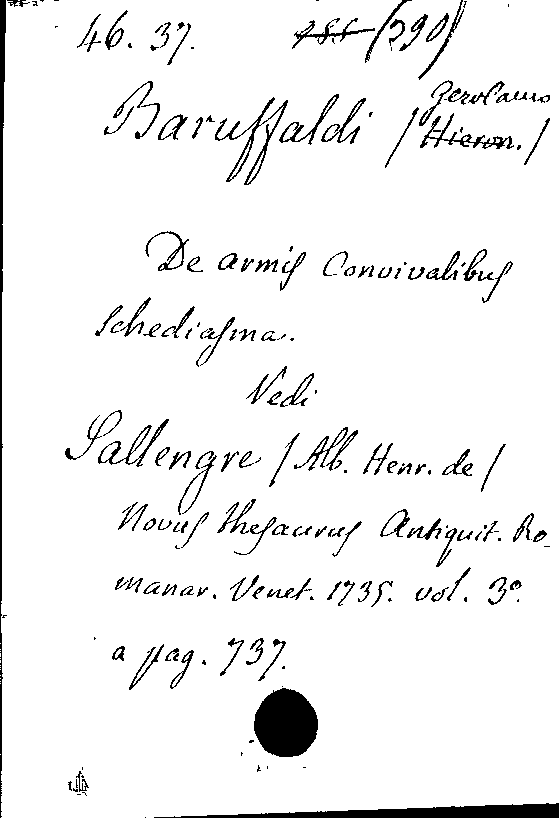 46. 37. (390)
Baruffaldi / Gerolamo
Hieron. /
De armis Convivalibus
Schediasma.
Vedi
Sallengre / Alb. Henr. de /
Novus thesaurus Antiquit. Ro-
manar. Venet. 1735. vol. 3º
a pag. 737.